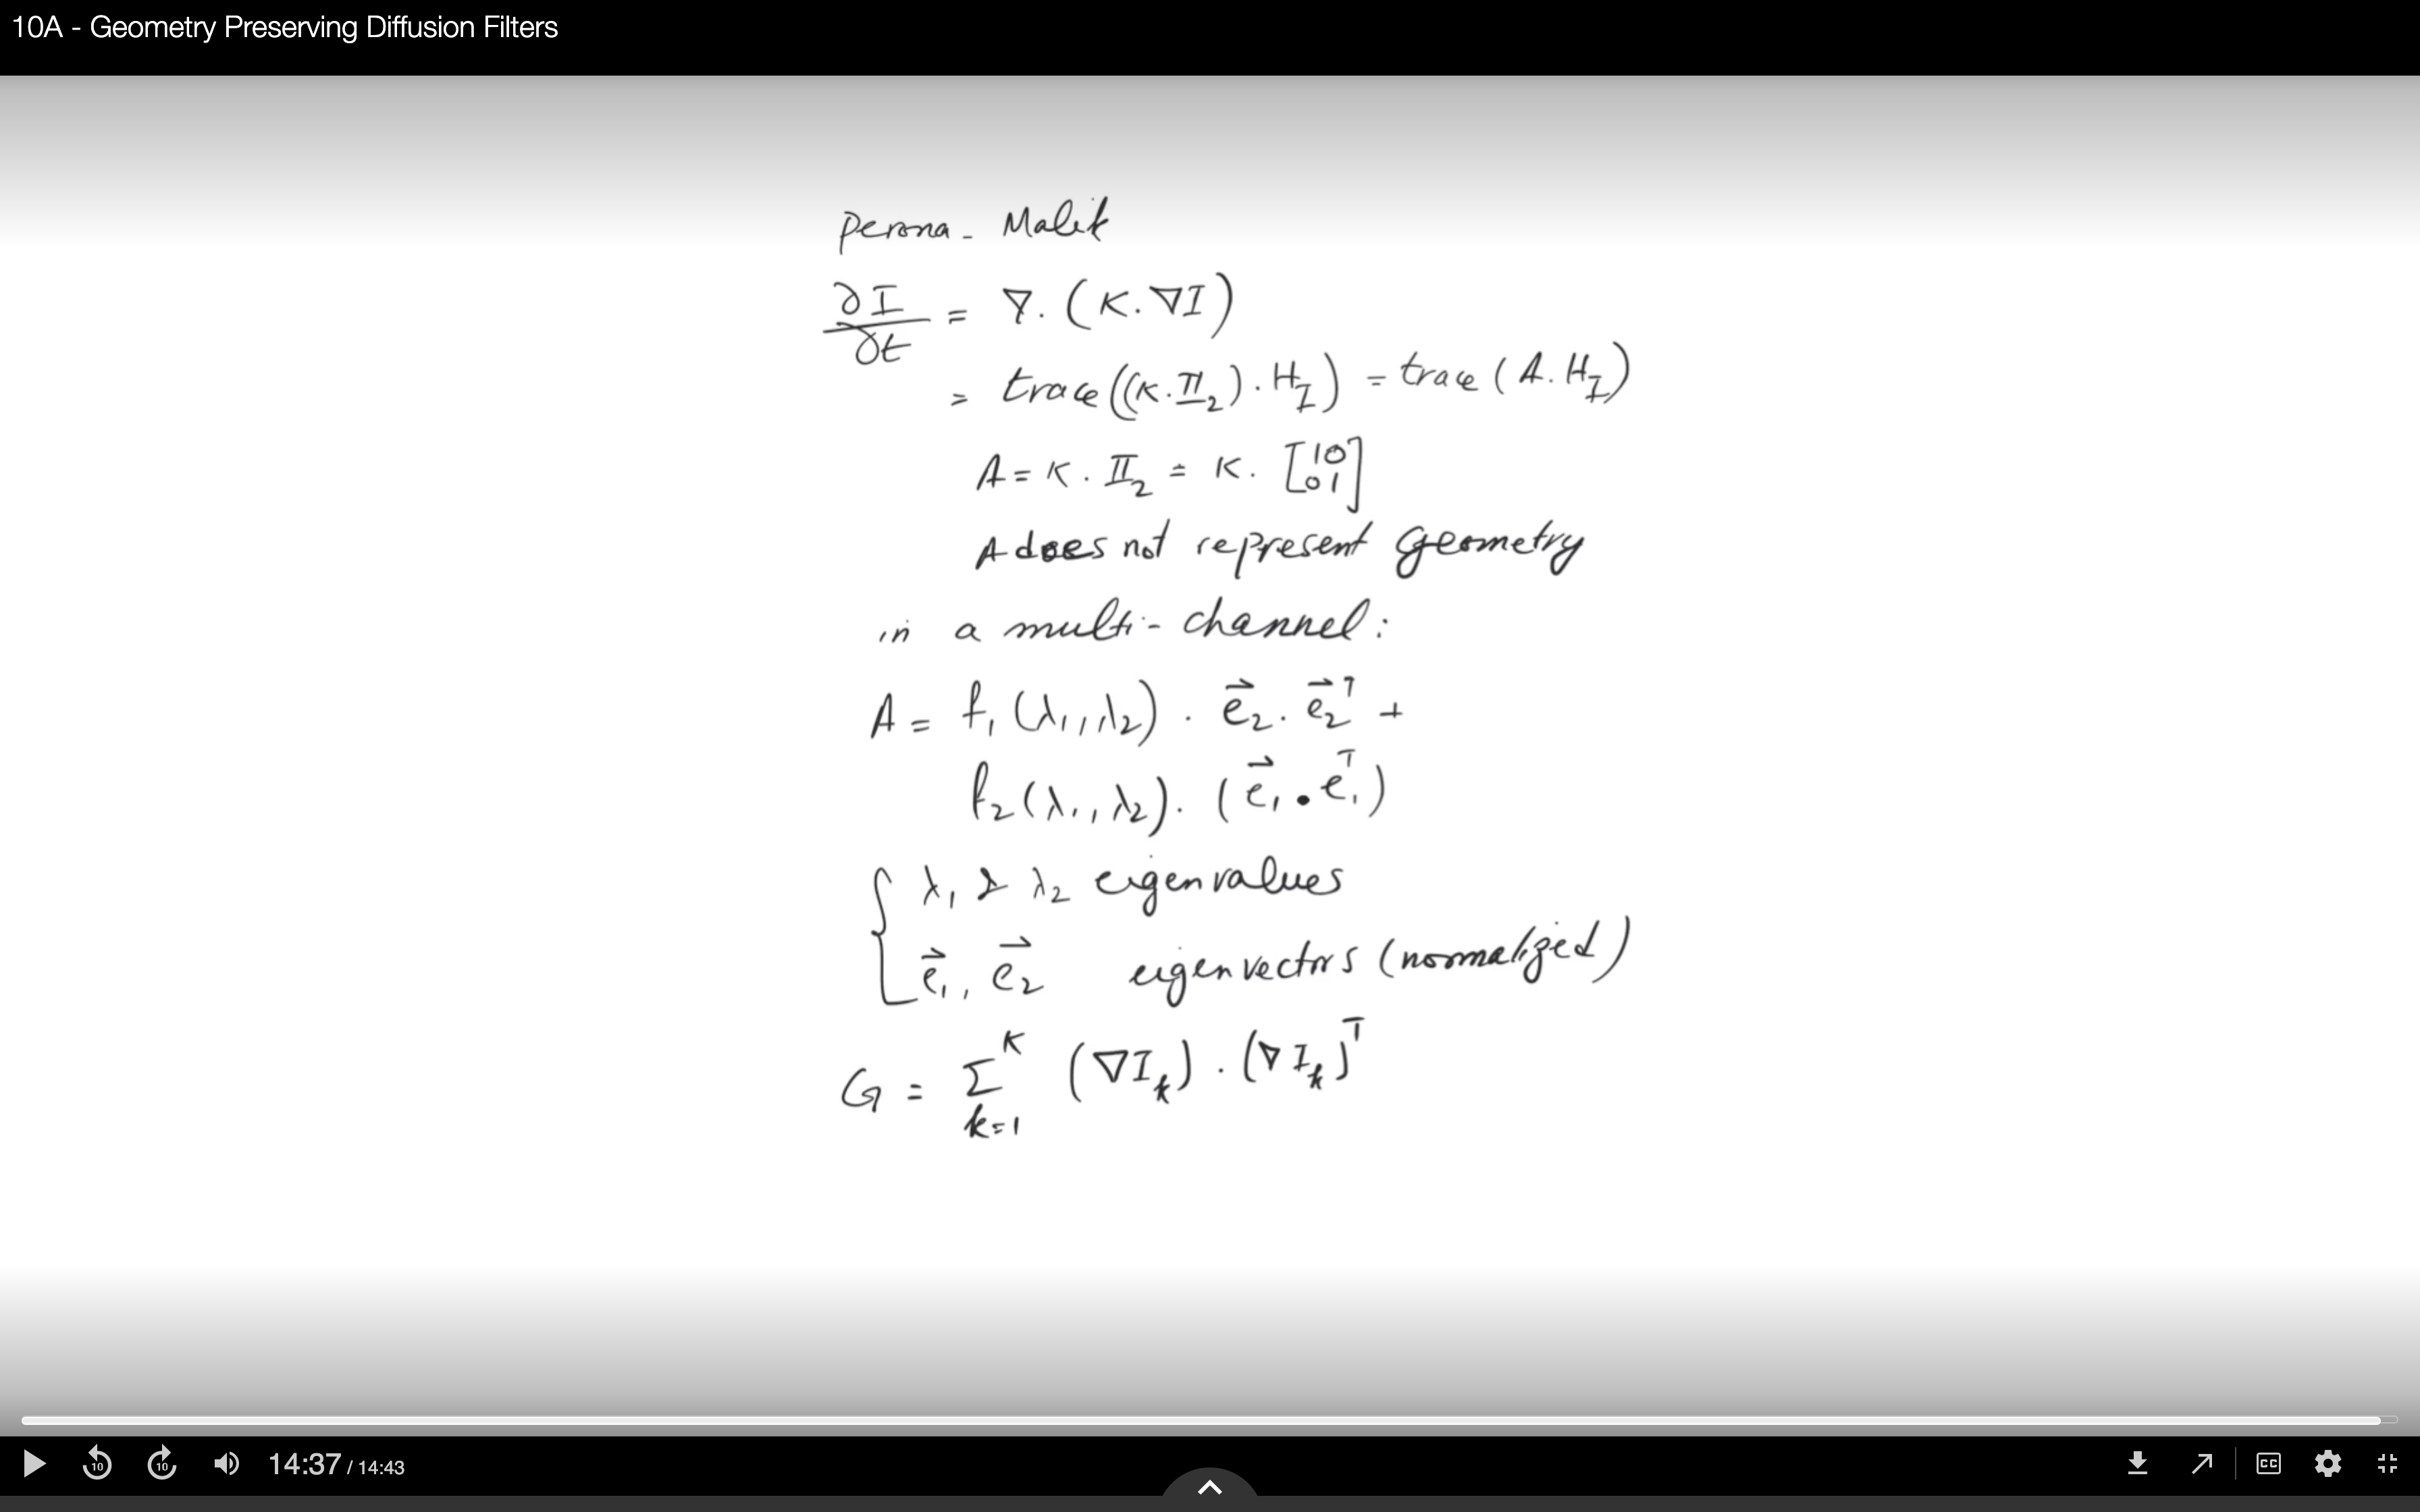 10A - Geometry Preserving Diffusion Filters
Perona - Malik
∂I/∂t = ∇.(K.∇I)
= trace((K.𝕀₂).H_I) = trace(A.H_I)
A = K.𝕀₂ = K.[1 0; 0 1]
A does not represent geometry
in a multi-channel:
A = f₁(λ₁,λ₂) . e⃗₂.e⃗₂ᵀ +
f₂(λ₁,λ₂).(e⃗₁.e₁ᵀ)
λ₁ & λ₂ eigenvalues
e⃗₁, e⃗₂ eigenvectors (normalized)
G = Σ_{k=1}^{K} (∇I_k).(∇I_k)ᵀ
10 10 14:37 / 14:43 CC